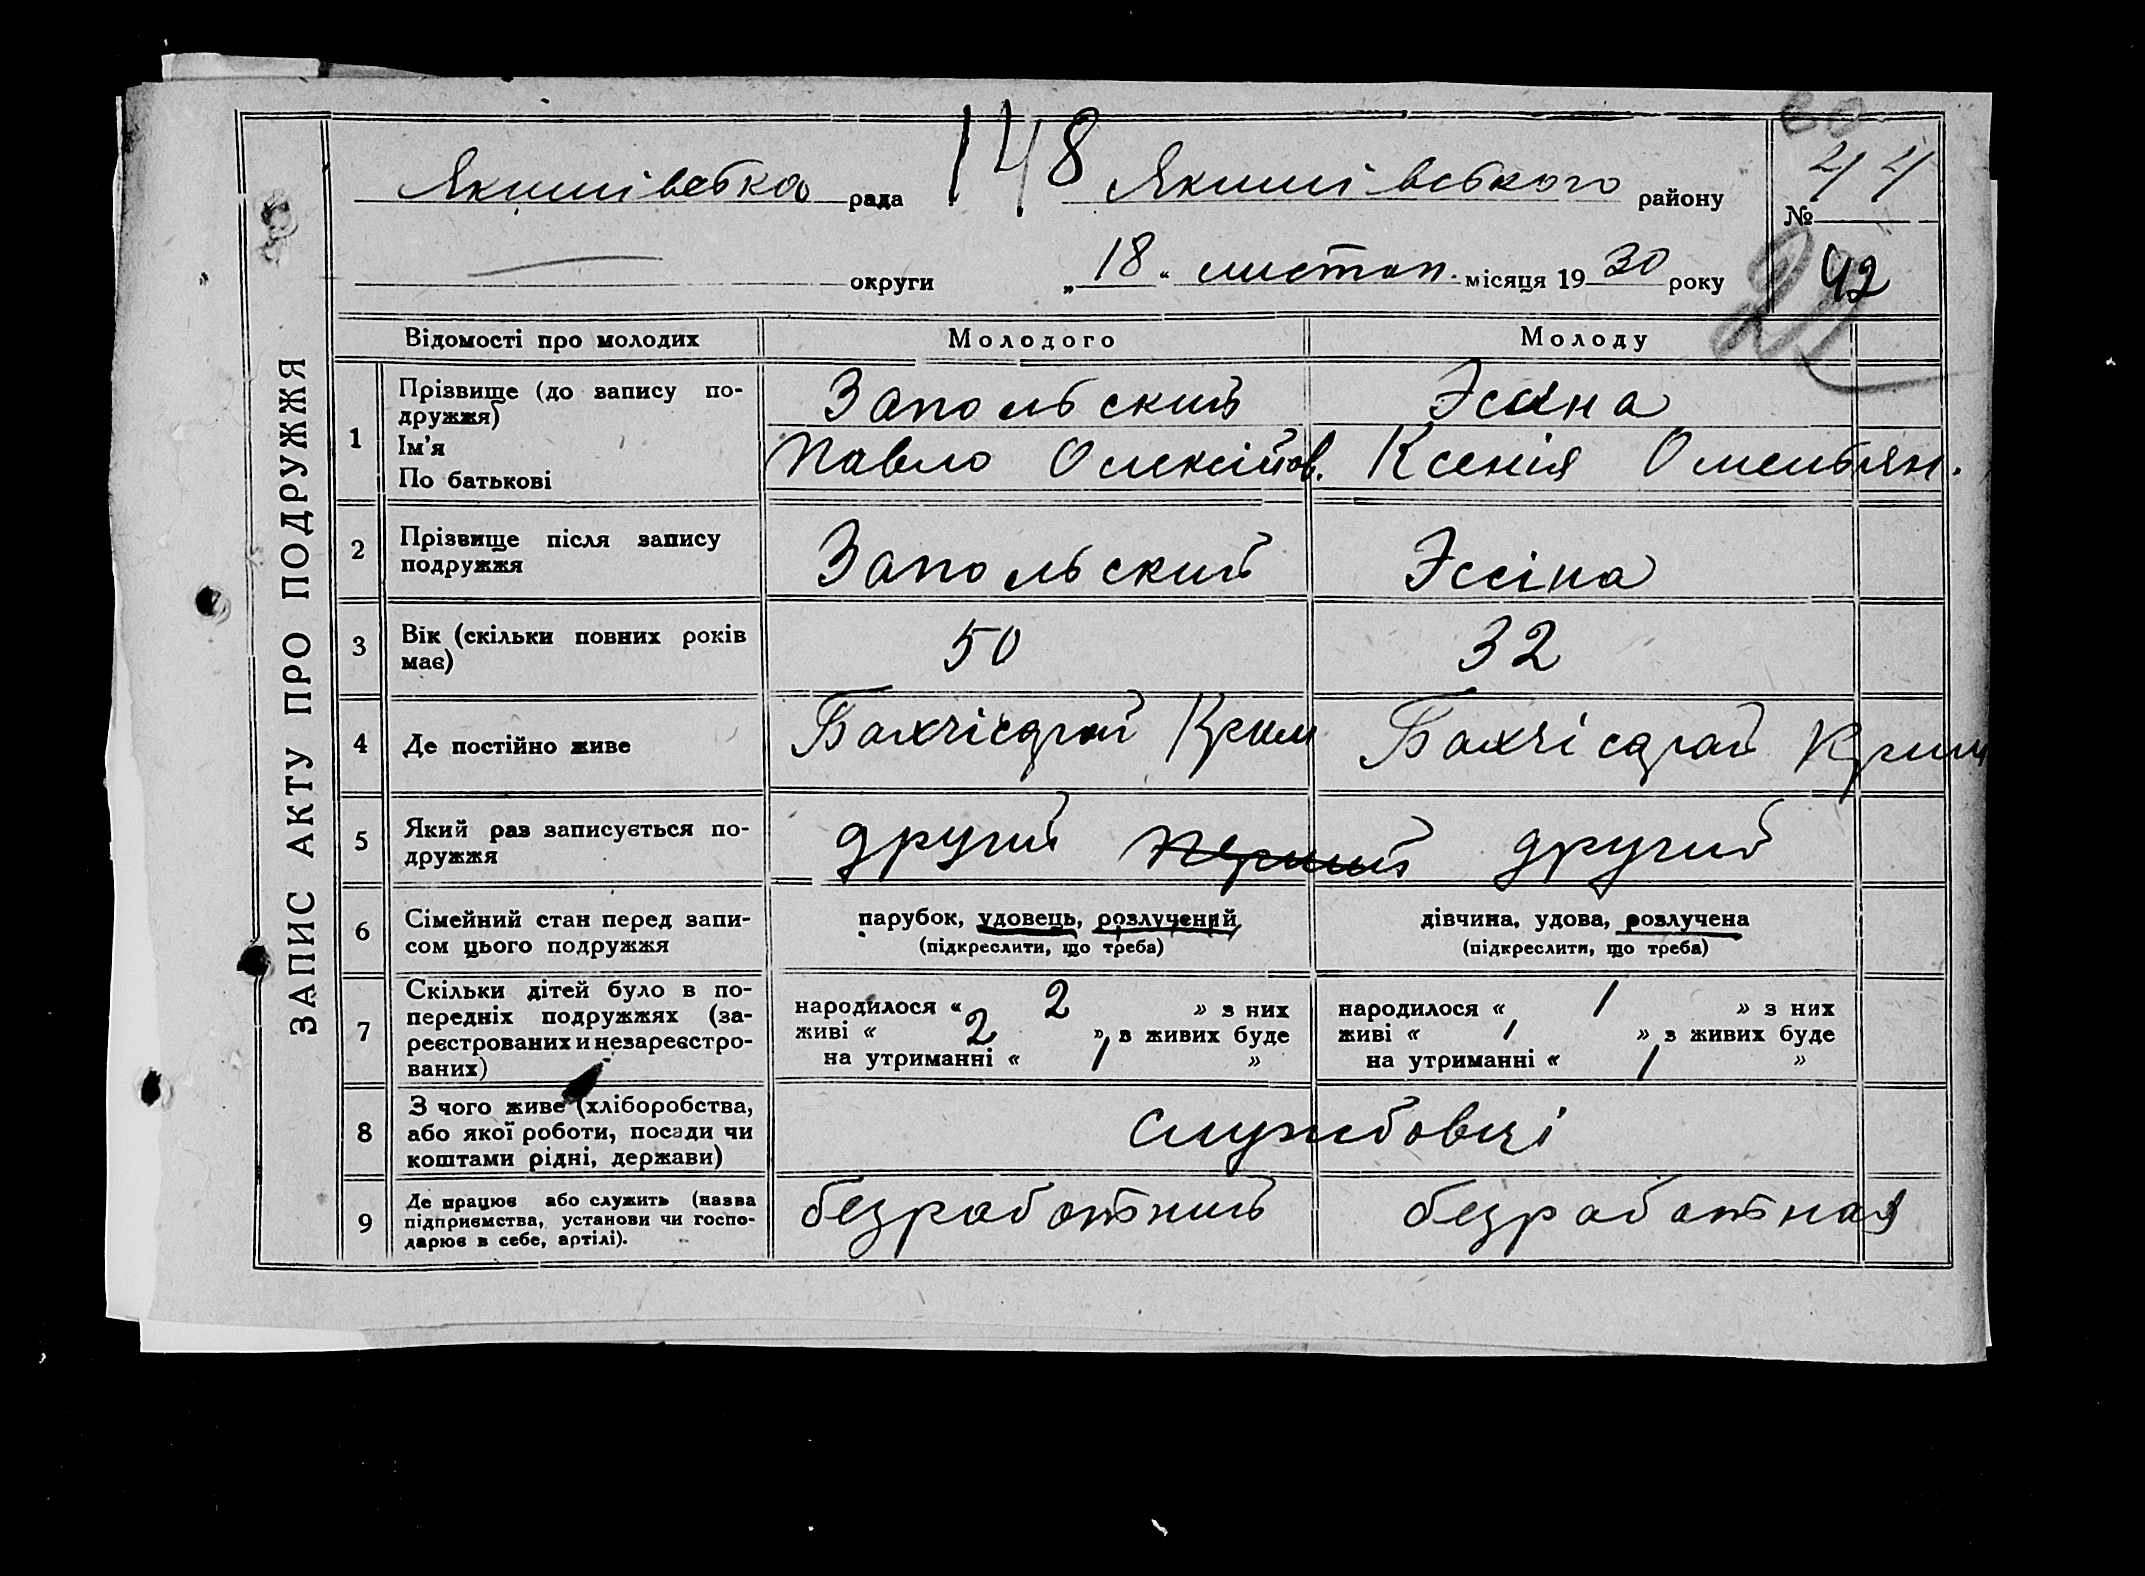 ЗАПИС АКТУ ПРО ПОДРУЖЖЯ
148
Якимівська рада Якимівського району
44
№
округи „18“ листоп. місяця 1930 року
42
Відомості про молодих Молодого Молоду
1 Прізвище (до запису по-
дружжя)
Ім'я
По батькові
Запольский
Павло Олексійов.
Эсина
Ксенія Омельян.
2 Прізвище після запису
подружжя
Запольский Эссіна
3 Вік (скільки повних років
має)
50 32
4 Де постійно живе Бахчісарай Крим Бахчісарай Крим
5 Який раз записується по-
дружжя
другий перший другий
6 Сімейний стан перед запи-
сом цього подружжя
парубок, удовець, розлучений
(підкреслити, що треба)
дівчина, удова, розлучена
(підкреслити, що треба)
7 Скільки дітей було в по-
передніх подружжях (за-
реєстрованих и незареєстро-
ваних)
народилося « 2 » з них
живі « 2 », з живих буде
на утриманні « 1 »
народилося « 1 » з них
живі « 1 », з живих буде
на утриманні « 1 »
8 З чого живе (хліборобства,
або якої роботи, посади чи
коштами рідні, держави)
службовці
9 Де працює або служить (назва
підприємства, установи чи госпо-
дарює в себе, артілі).
безработний безработная